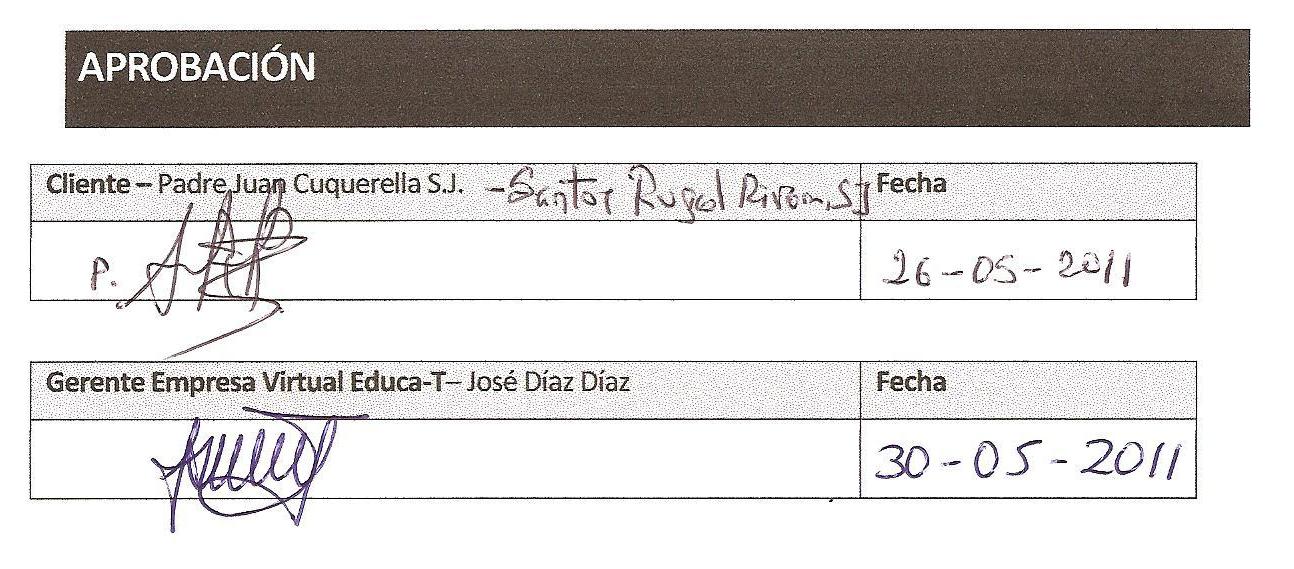 APROBACIÓN
Cliente – Padre Juan Cuquerella S.J. - Santos Fecha
P. 26-05-2011
Gerente Empresa Virtual Educa-T– José Díaz Díaz Fecha
30-05-2011